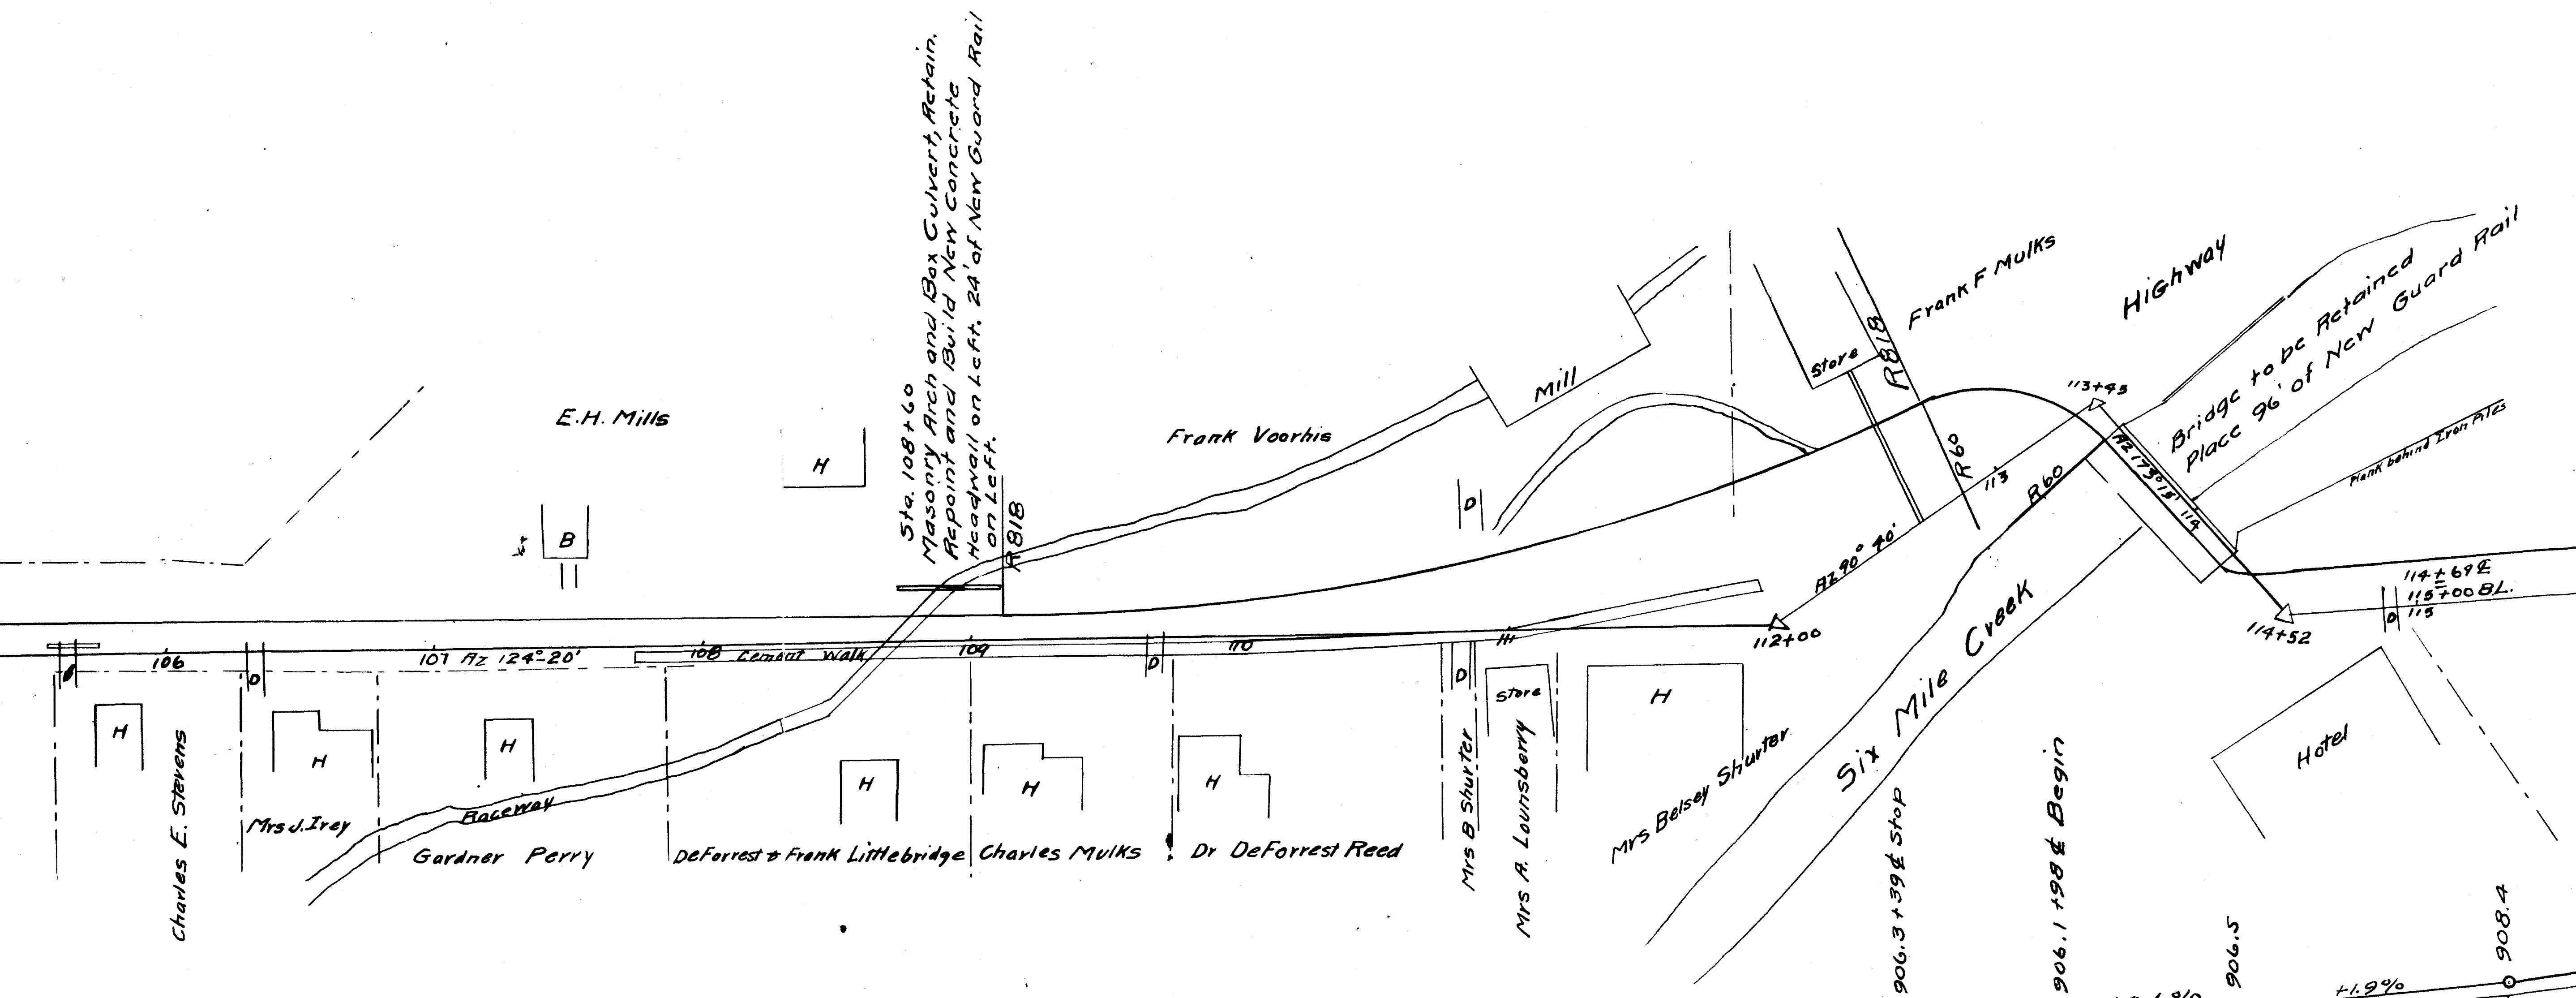 Sta. 108+60
Masonry Arch and Box Culvert, Retain.
Repoint and Build New Concrete
Headwall on Left. 24' of New Guard Rail
on Left.
R818
E.H. Mills
H
B
Frank Voorhis
Mill
D
Store
R818
R60
Frank F Mulks
Highway
113+45
113
Az 90° 40'
R60
Az 173° 15'
114
Bridge to be Retained
Place 96' of New Guard Rail
Plank behind Iron Piles
114+69 ℄
=
115+00 B.L.
115
D
114+52
112+00
106
D
107 Az 124°-20'
108 Cement Walk
109
D
110
111
D
H
Charles E. Stevens
H
Mrs J. Irey
H
Raceway
Gardner Perry
H
DeForrest & Frank Littlebridge
H
Charles Mulks
H
Dr DeForrest Reed
Mrs B Shurter
Store
Mrs A. Lounsberry
H
Mrs Belsey Shurter
Six Mile Creek
Hotel
906.3 +39 ℄ Stop
906.1 +98 ℄ Begin
906.5
908.4
+1.9%